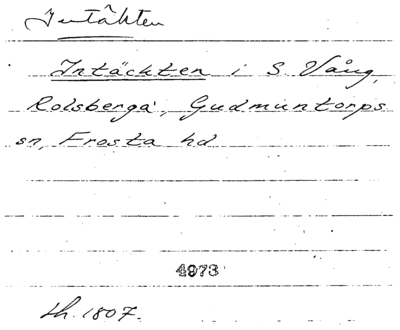 Jntäkten
Jntäckten i S. Vång,
Rolsberga, Gudmuntorps
sn, Frosta hd
4973
th. 1807.